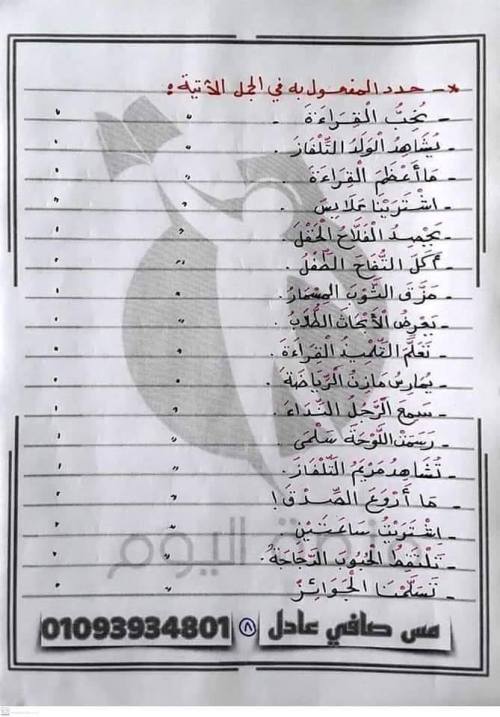 *- حدد المفعول به في الجمل الآتية :
- نُحِبُّ الْقِرَاءَةَ .
- يُشَاهِدُ الْوَلَدُ التِّلْفَازَ .
- مَا أَعْظَمَ الْقِرَاءَةَ .
- اشْتَرَيْنَا مَلَابِسَ .
- يَحْصِدُ الْفَلَّاحُ الْحَقْلَ .
- أَكَلَ التُّفَّاحَ الطِّفْلُ .
- مَزَّقَ الثَّوْبَ الْمِسْمَارُ .
- يَعْرِضُ الْأَبْحَاثَ الطُّلَّابُ .
- تَعَلَّمَ التِّلْمِيذُ الْقِرَاءَةَ .
- يُمَارِسُ مَازِنُ الرِّيَاضَةَ .
- سَمِعَ الرَّجُلُ النِّدَاءَ .
- رَسَمَتْ اللَّوْحَةَ سَلْمَى .
- تُشَاهِدُ مَرْيَمُ التِّلْفَازَ .
- مَا أَرْوَعَ الصِّدْقَ !
- اشْتَرَيْتُ سَاعَتَيْنِ
- تَلْتَقِطُ الْحُبُوبَ الدَّجَاجَةُ .
- تَسَلَّمْنَا الْجَوَائِزَ
اليوم
مس صافي عادل ٨ 01093934801